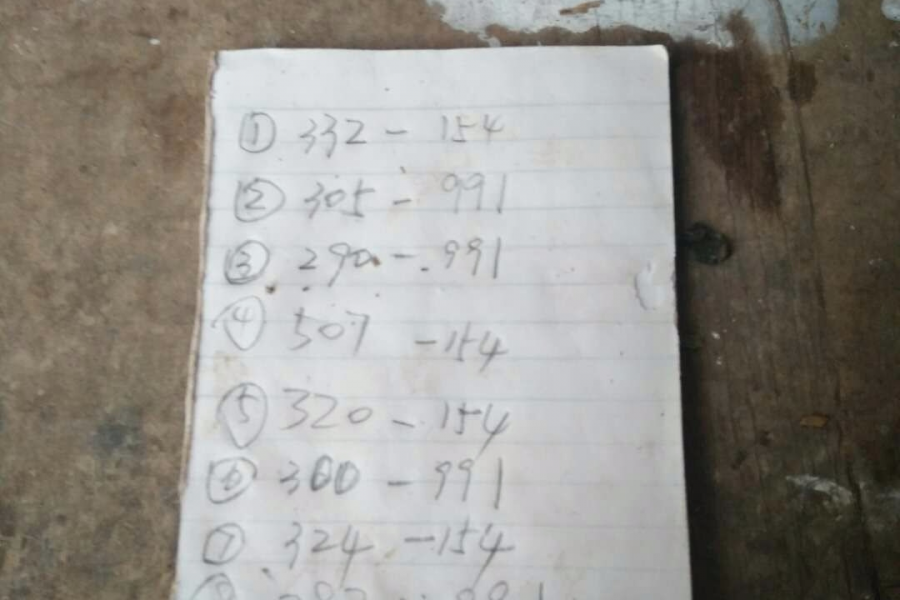 ① 332 - 154
② 305 - 991
③ 290 - 991
④ 507 - 154
⑤ 320 - 154
⑥ 300 - 991
⑦ 324 - 154